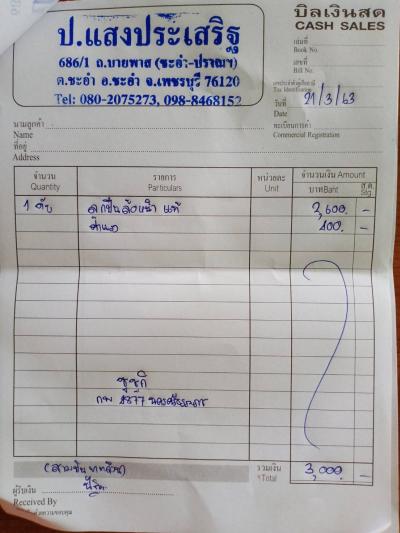 บิลเงินสด
CASH SALES
ป.แสงประเสริฐ
686/1 ถ.บายพาส (ชะอำ-ปราณฯ)
ต.ชะอำ อ.ชะอำ จ.เพชรบุรี 76120
Tel: 080-2075273, 098-8468152
เล่มที่
Book No.
เลขที่
Bill No.
เลขประจำตัวผู้เสียภาษี
Tax Identification
วันที่ 21/3/63
Date
นามลูกค้า
Name
ทะเบียนการค้า
Commercial Registration
ที่อยู่
Address
จำนวน รายการ หน่วยละ จำนวนเงิน Amount
Quantity Particulars Unit บาท Baht ส.ต. Stg.
1 ตับ ลูกปืนล้อหน้า แท้ 2,600. -
ค่าแรง 400. -
ซูซูกิ
กพ 4877 นครศรีธรรมราช
(สามพันบาทถ้วน) รวมเงิน 3,000. -
Total
ผู้รับเงิน
Received By